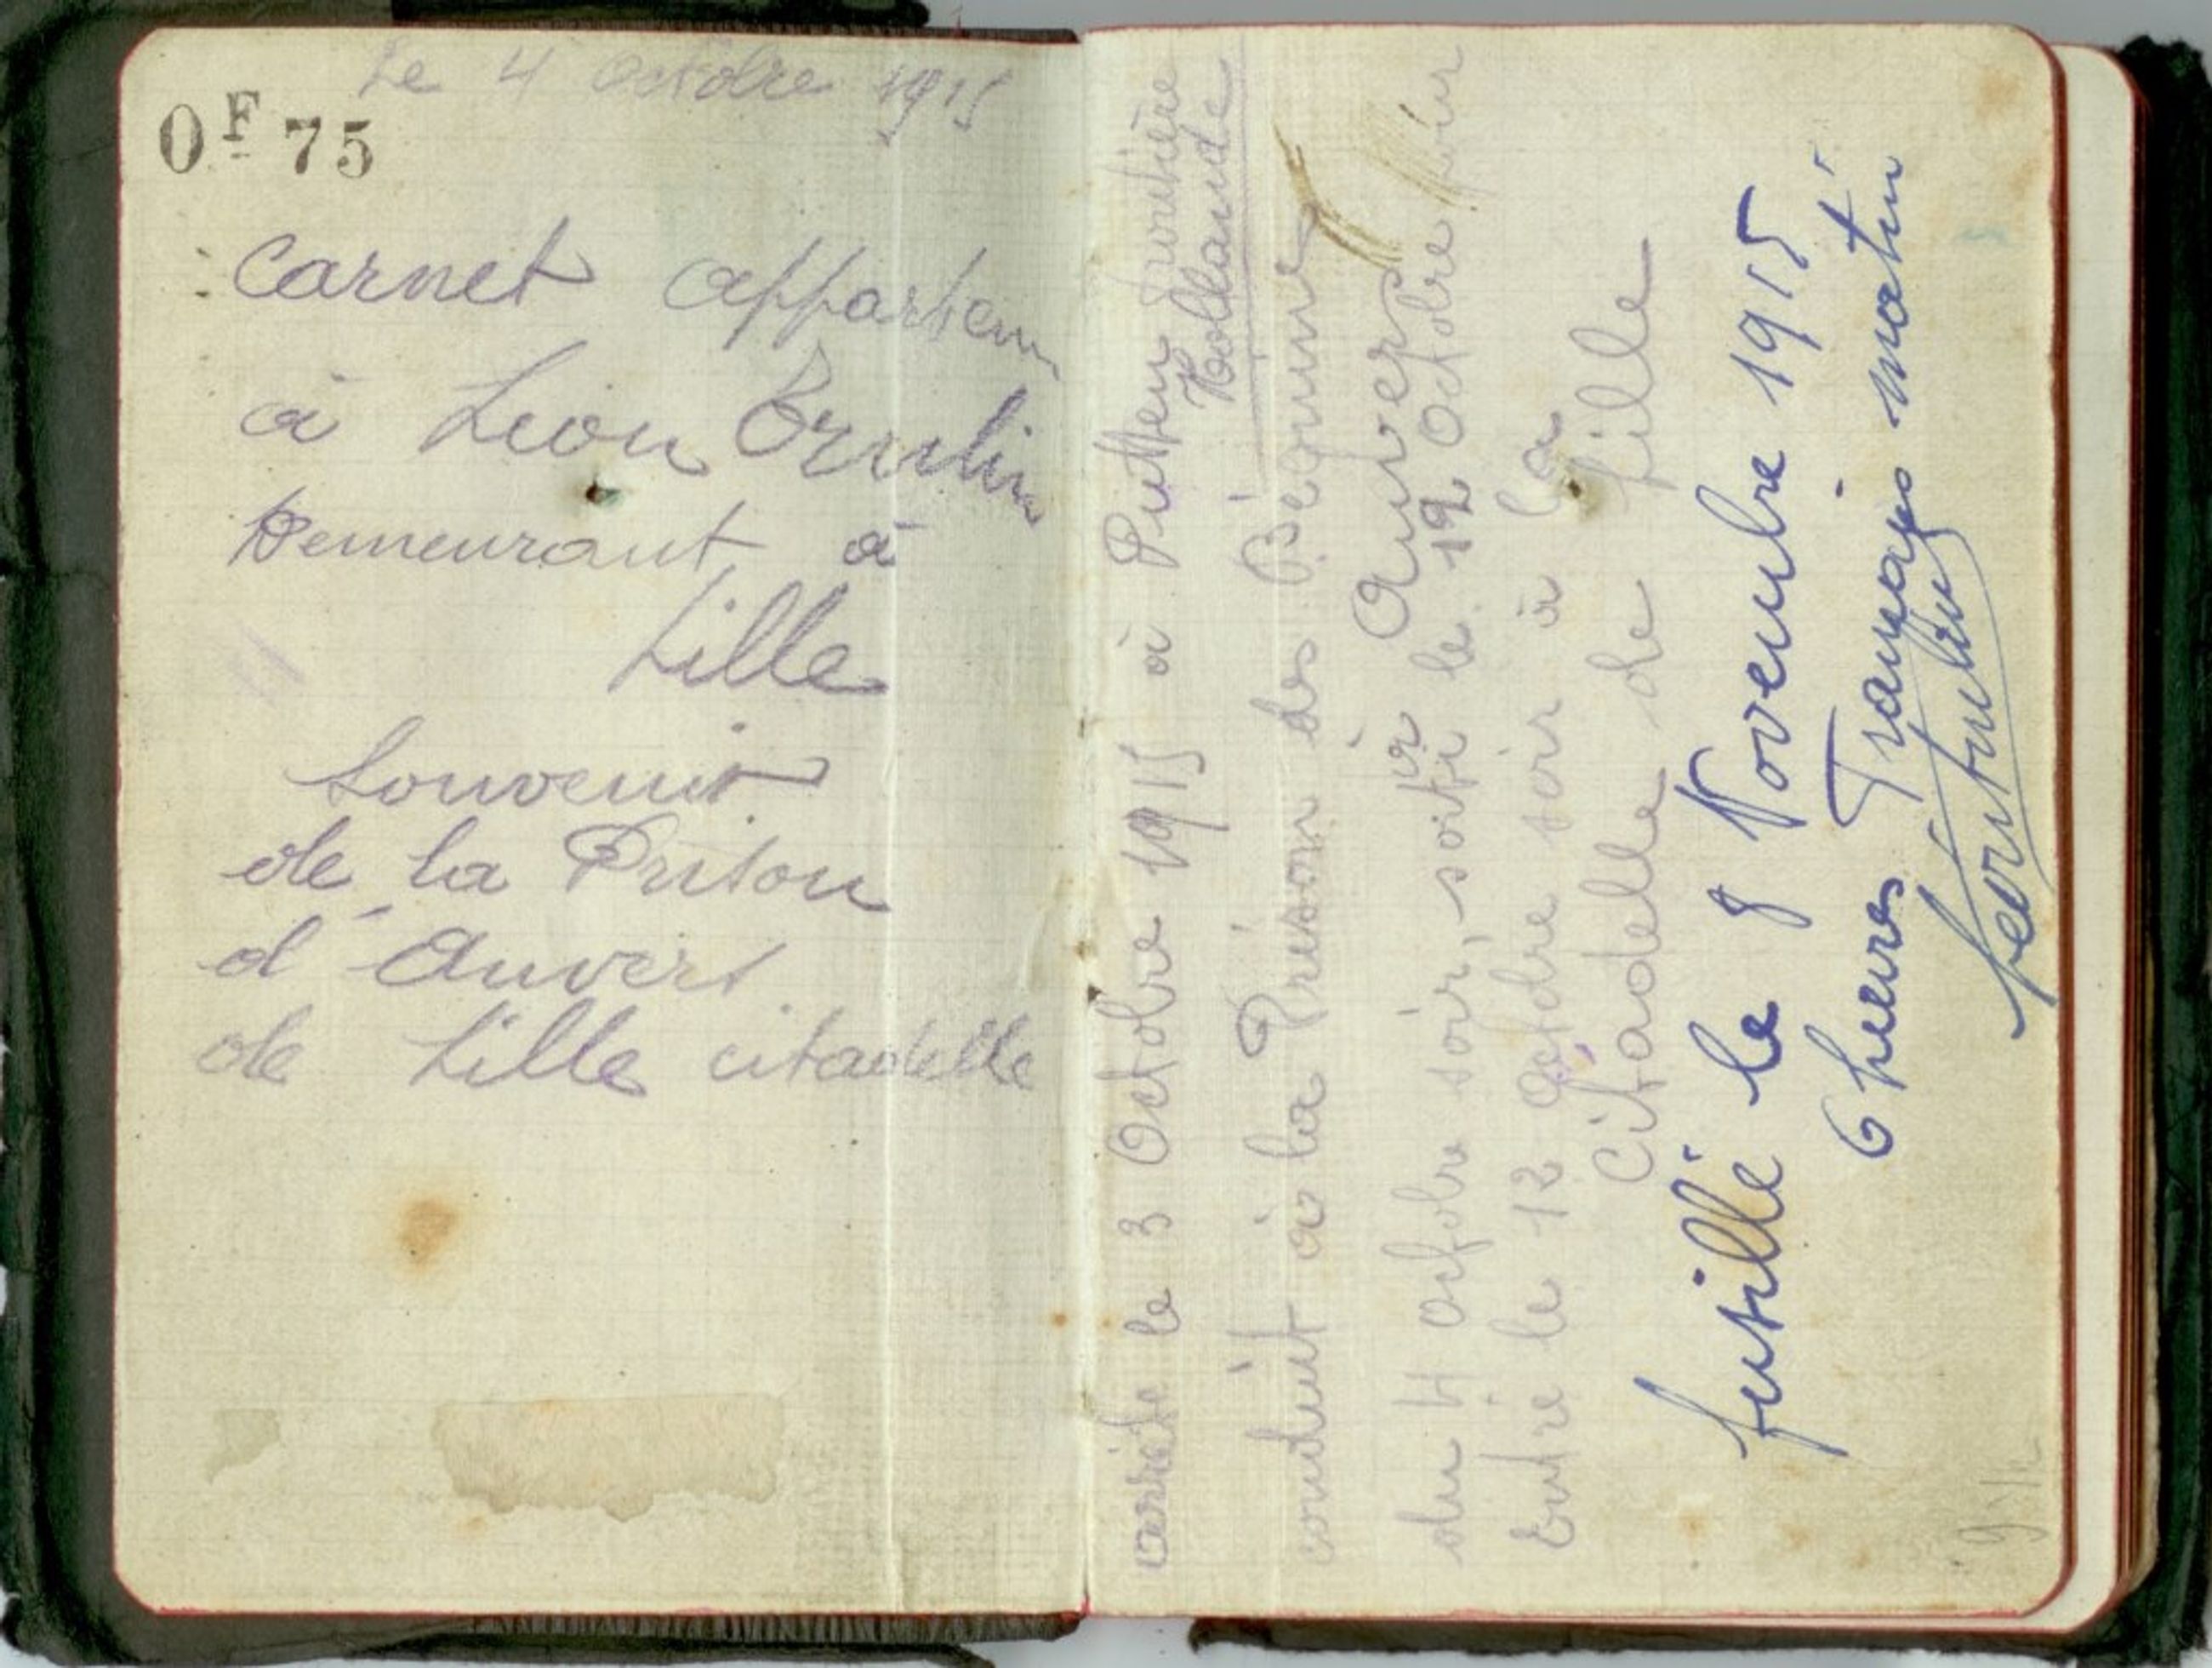 Le 4 Octobre 1915
OF 75
Carnet appartenant
à Leon Trulin
Demeurant à
Lille
Souvenir
de la Prison
d'Anvers
de Lille citadelle
arrété le 3 Octobre 1915 à Putten frontière
Hollande
conduit à la Prison des Béguines
à Anvers
du 4 octobre soir, sorti le 12 Octobre pour
Entré le 12 octobre soir à la
Citadelle de Lille
fusillé le 8 Novembre 1915
6 heures Français matin